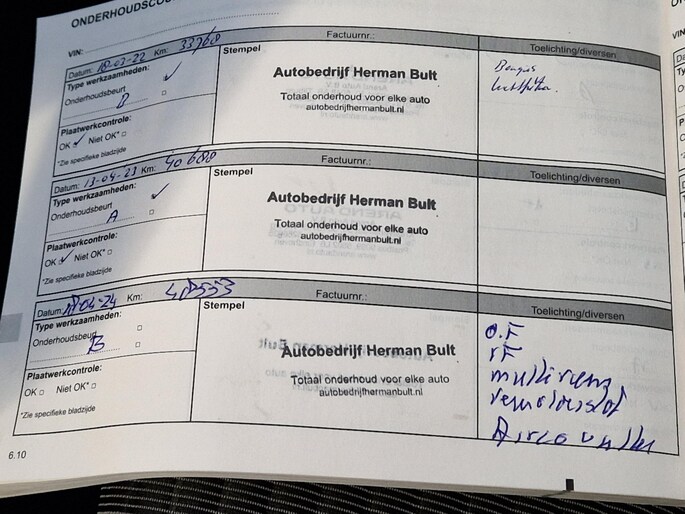 ONDERHOUDSCOU
VIN:
Factuurnr.:
Datum: 18-03-22 Km: 33768
Stempel
Toelichting/diversen
Type werkzaamheden:
Onderhoudsbeurt
B
Autobedrijf Herman Bult
Totaal onderhoud voor elke auto
autobedrijfhermanbult.nl
Plaatwerkcontrole:
OK Niet OK*
*Zie specifieke bladzijde
Factuurnr.:
Datum: 13-04-23 Km: 40680
Stempel
Toelichting/diversen
Type werkzaamheden:
Onderhoudsbeurt
A
Autobedrijf Herman Bult
Totaal onderhoud voor elke auto
autobedrijfhermanbult.nl
Plaatwerkcontrole:
OK Niet OK*
*Zie specifieke bladzijde
Factuurnr.:
Datum: 04-24 Km:
Stempel
Toelichting/diversen
Type werkzaamheden:
Onderhoudsbeurt
B
Autobedrijf Herman Bult
Totaal onderhoud voor elke auto
autobedrijfhermanbult.nl
O.F
Plaatwerkcontrole:
OK Niet OK*
*Zie specifieke bladzijde
6.10